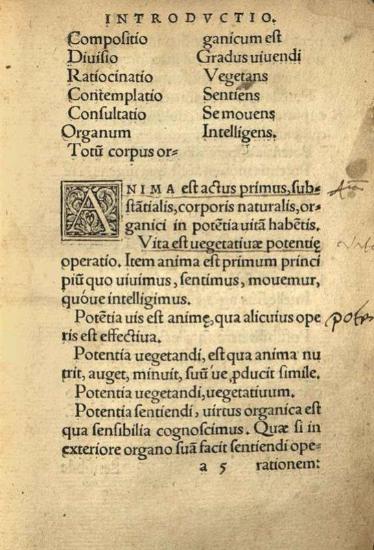 INTRODVCTIO.
Compositio ganicum est
Diuisio Gradus uiuendi
Ratiocinatio Vegetans
Cōtemplatio Sentiens
Consultatio Se mouens
Organum Intelligens.
Totū corpus or-
ANIMA est actus primus, sub-
stātialis, corporis naturalis, or-
ganici in potētia uitā habētis.
Vita est uegetatiuæ potentię
operatio. Item anima est primum princi
piū quo uiuimus, sentimus, mouemur,
quóue intelligimus.
Potētia uis est animę, qua alicuius ope
ris est effectiua.
Potentia uegetandi, est qua anima nu
trit, auget, minuit, suū ue ꝓducit simile.
Potentia uegetandi, uegetatiuum.
Potentia sentiendi, uirtus organica est
qua sensibilia cognoscimus. Quæ si in
exteriore organo suā facit sentiendi ope-
a 5 rationem: